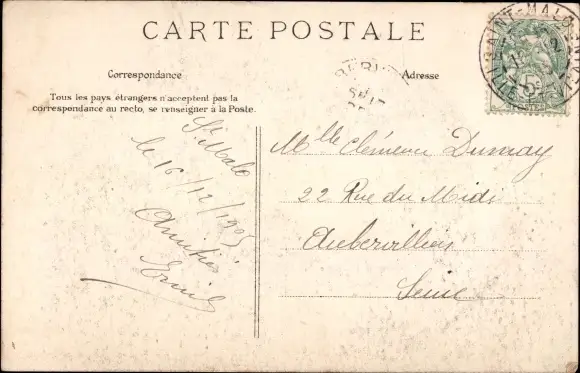 CARTE POSTALE
Correspondance
Adresse
Tous les pays étrangers n'acceptent pas la
correspondance au recto, se renseigner à la Poste.
St Malo
le 16/12/1905
Amitiés
Emile
Mlle Clémence Dumay
22 Rue du Midi
Aubervilliers
Seine
SAINT-MALO
5c
POSTES